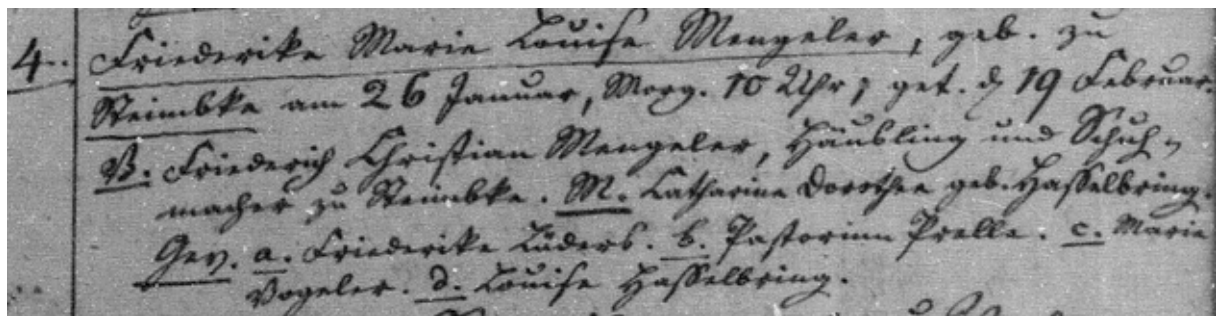 4. Friederike Marie Louise Mengeler, geb. zu
Steimbke am 26 Januar, Morg. 10 Uhr; get. d 19 Februar.
V. Friederich Christian Mengeler, Häusling und Schuh-
macher zu Steimbke. M. Catharine Dorothee geb. Hasselbring.
Gev. a. Friederike Lüders. b. Pastorinn Prelle. c. Marie
Vogeler. d. Louise Hasselbring.